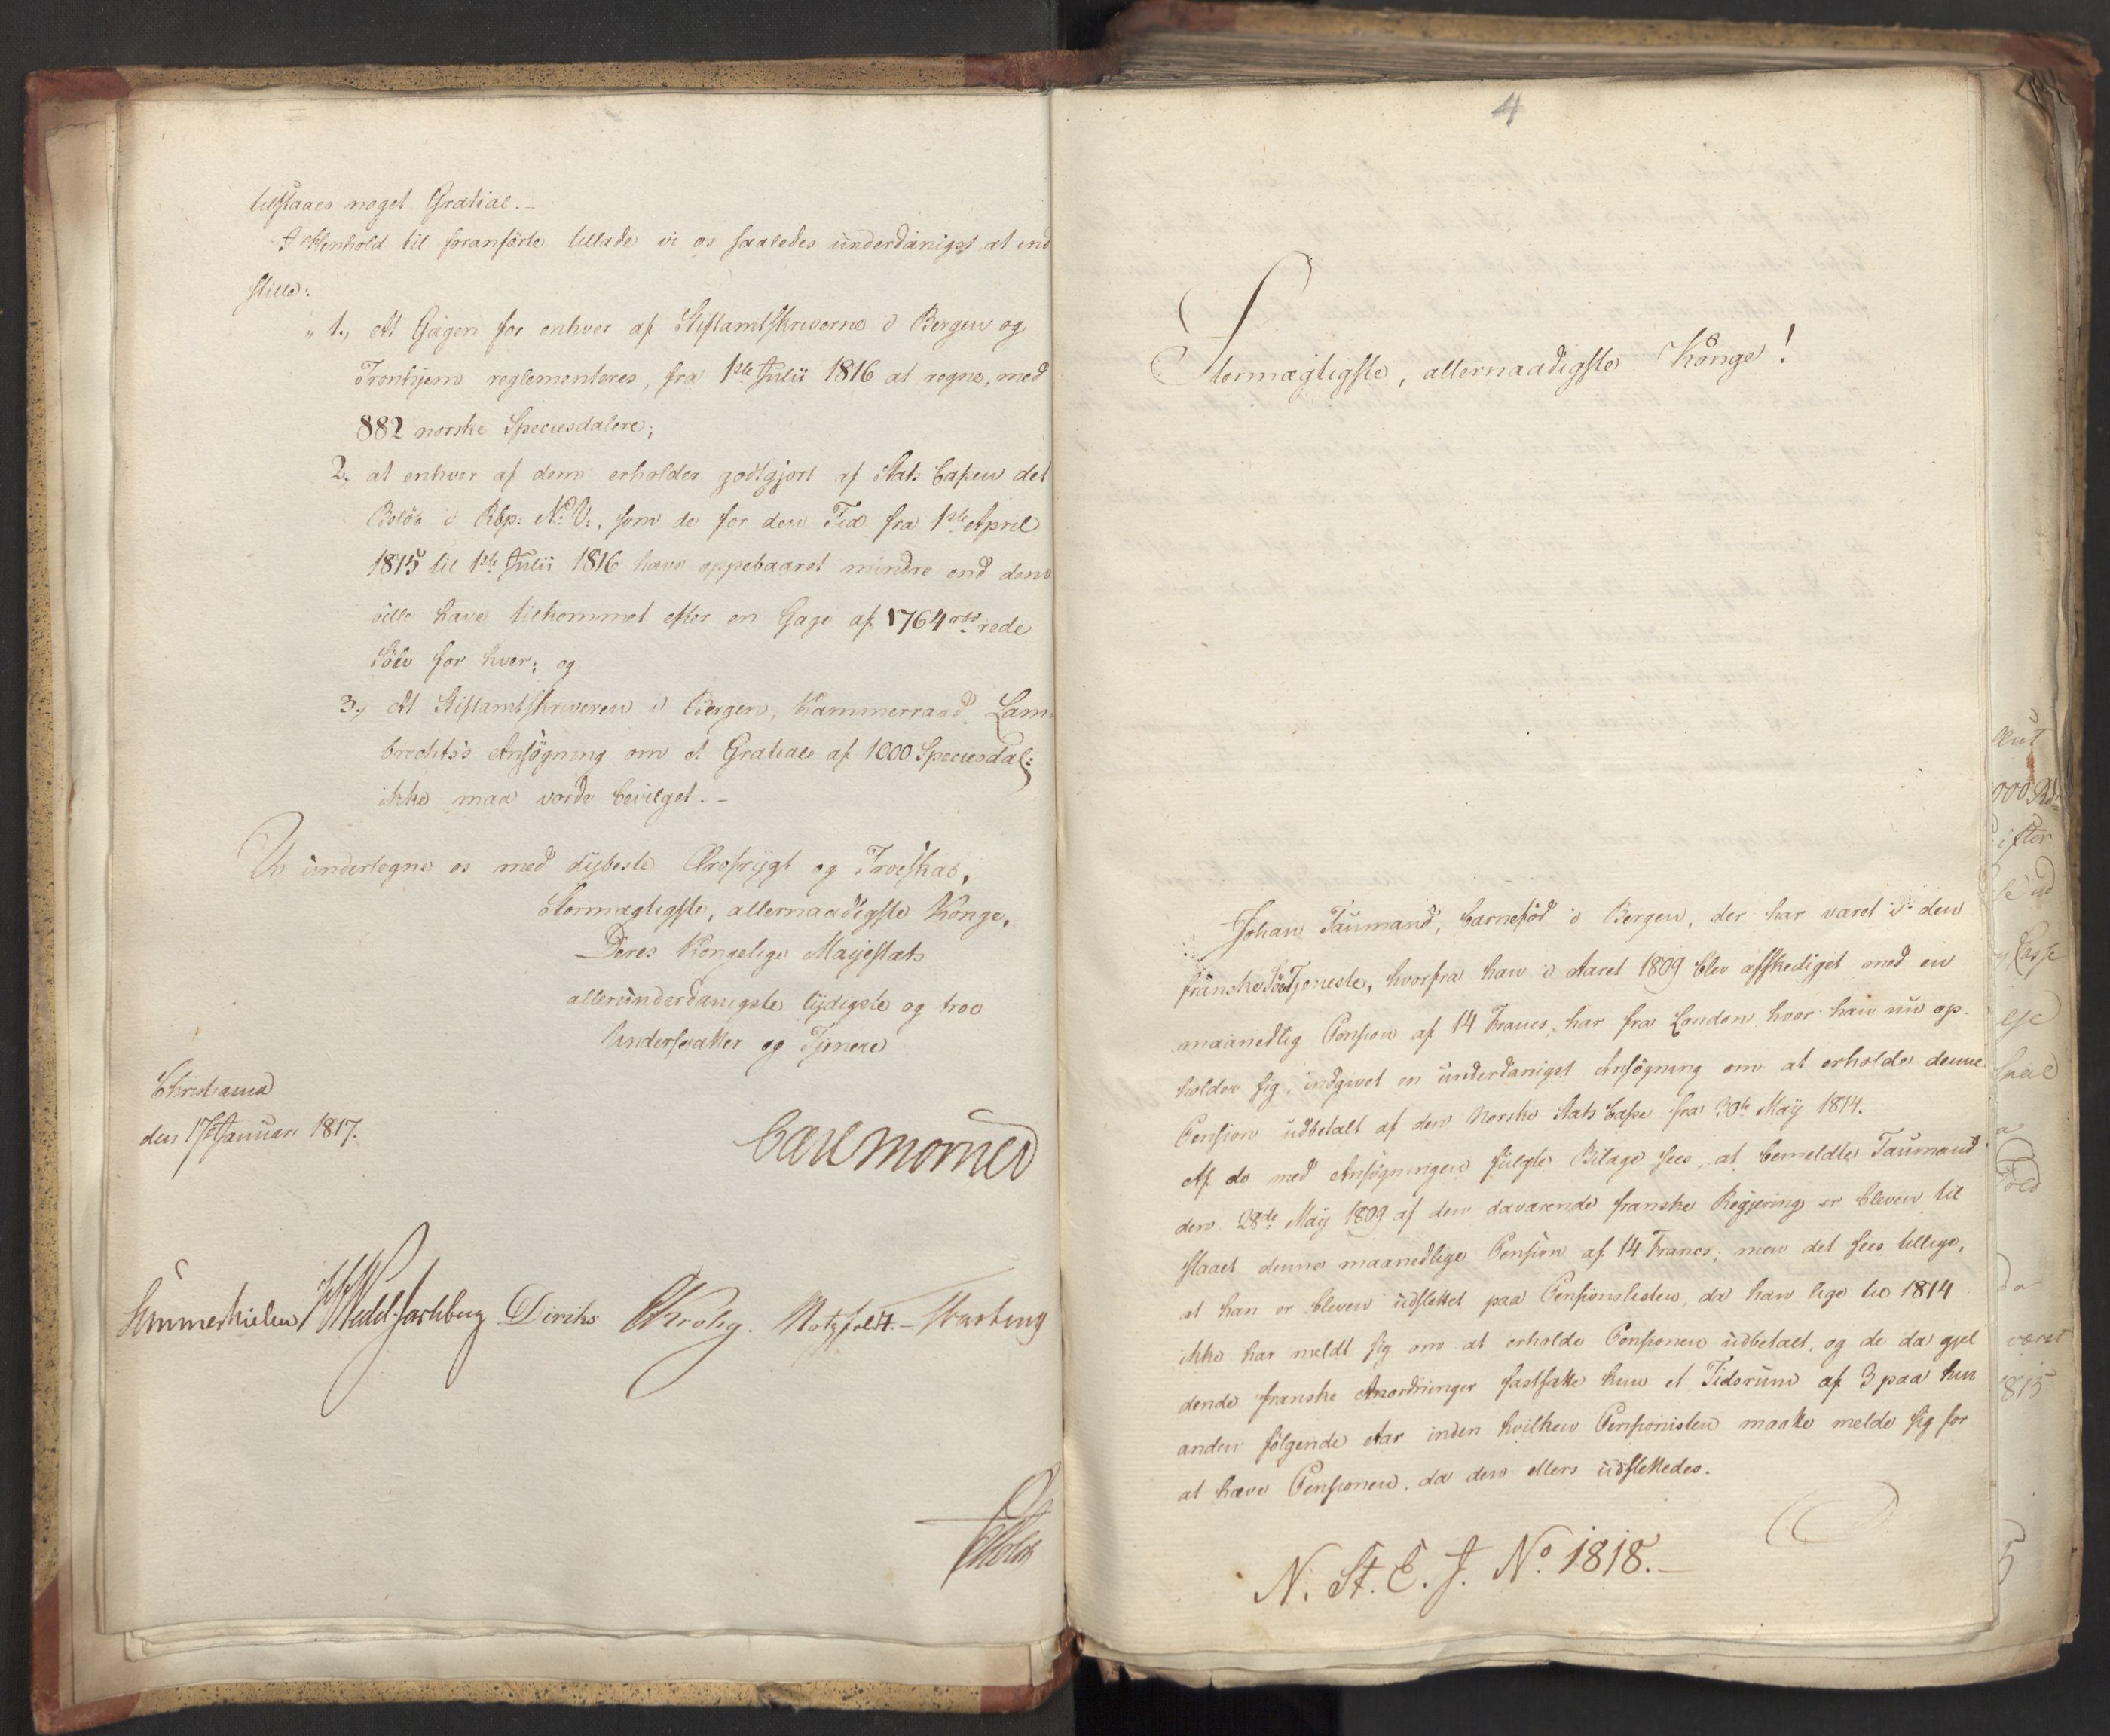 tilstaaes noget Gratial.–
I Henhold til foranførte tillade vi os saaledes underdanigst at ind
stille:
" 1., At Gagen for enhver af Stiftamtskriverne i Bergen og
Trondhjem reglementeres, fra 1ste Julii 1816 at regne, med
882 norske Speciesdalere;
2., at enhver af dem erholder godtgjort af Stats Cassen det
Beløb i Rbp: N: V:, som de for den Tid fra 1ste April
1815 til 1ste Julii 1816 have oppebaaret mindre end dem
ville have tilkommet efter en Gage af 1764 rbd rede
Sølv for hver; og
3., At Stiftamtskriveren i Bergen, Kammerraad Lam
brechts's Ansøgning om et Gratiale af 1000 Speciesdal:
ikke maa vorde bevilget.–
Vi undertegne os med dybeste Ærefrygt og Troeskab,
Stormægtigste, allernaadigste Konge,
Deres Kongelige Majestæts
allerunderdanigste lydigste og troe
Undersaatter og Tjenere
Christiania
den 17de Januari 1817.
Carl Mörner
Sommerhielm Wedel Jarlsberg Diriks CKrohg. Motzfeldt.– Vhartung
Holst
4
Stormægtigste, allernaadigste Konge!
Johan Taumand, barnefød i Bergen, der har været i den
franske SøeTjeneste, hvorfra han i Aaret 1809 blev afskediget med en
maanedlig Pension af 14 Francs, har fra London hvor han nu op-
holder sig, indgivet en underdanigst Ansøgning om at erholde denne
Pension udbetalt af den Norske Stats Casse fra 30te May 1814.
Af de med Ansøgningen fulgte Bilage sees, at bemeldte Taumand
den 28de May 1809 af den daværende franske Regjering er bleven til
staaet denne maanedlige Pension af 14 Francs; men det sees tillige,
at han er bleven udslettet paa Pensionslisten, da han lige til 1814
ikke har meldt sig om at erholde Pensionen udbetalt, og de da gjel
dende franske Anordninger fastsatte kun et Tidsrum af 3 paa hin
anden følgende Aar inden hvilken Pensionisten maatte melde sig for
at have Pensionen, da den ellers udslettedes.
N. St. C. J. No 1818.–
000 Rd
ifter
se ud
else
Told
da
været
1815